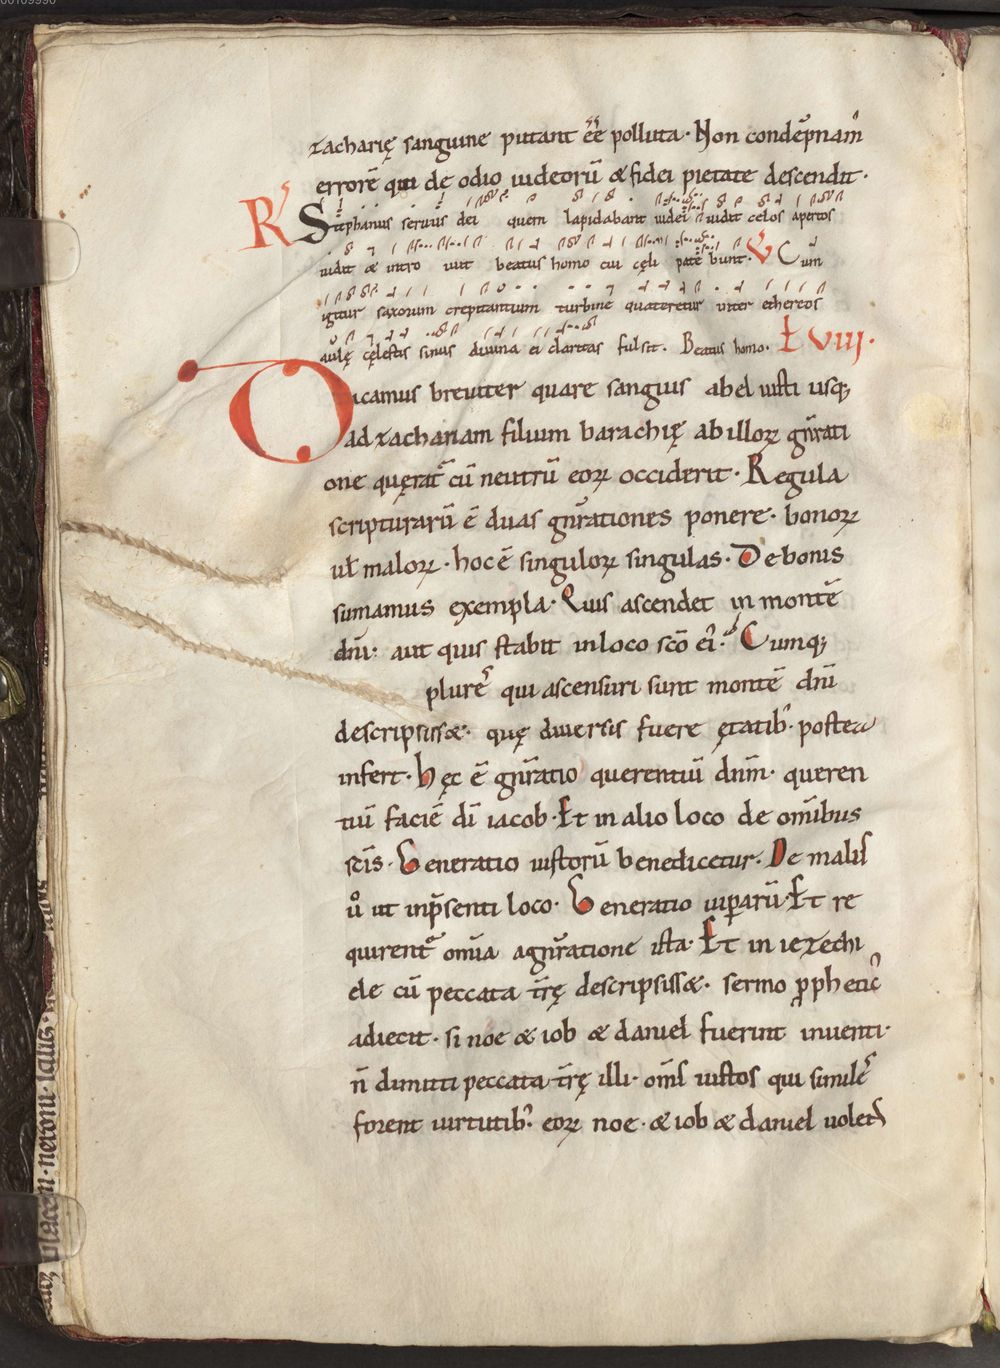 zacharię sanguine putant eē̄ polluta· Non condēpnam᷒
errorē qui de odio iudeorū & fidei pietate descendit·
R᷒ Stephanus seruus dei quem lapidabant iudei uidit celos apertos
uidit & introiuit beatus homo cui cęli patebunt· V Cum
igitur saxorum crepitantium turbine quateretur inter ethereos
aulę cęlestis sinus diuina ei claritas fulsit. Beatus homo. L VIII·
Dicamus breuiter quare sanguis abel iusti usq;
ad zachariam filium barachię ab illoꝝ gn̄rati
one quęrat᷒ cū neutrū eoꝝ occiderit· Regula
scripturarū ē duas gn̄rationes ponere· bonoꝝ
ul̄ maloꝝ· hoc ē singuloꝝ singulas· De bonis
sumamus exempla· Quis ascendet in montē
dn̄i: aut quis stabit in loco sc̄o ei᷒· Cumq;
plure᷒ qui ascensuri sunt montē dn̄i
descripsiss&· quę diuersis fuere ętatib᷒· postea
infert· hęc ē gn̄ratio querentiū dn̄m· queren
tiū faciē dī iacob· Et in alio loco de om̄ibus
sc̄is· Generatio iustorū benedicetur· De malis
ů ut in p̄senti loco· Generatio uiꝑarū· Et re
quirent᷒ om̄ia a gn̄ratione ista· Et in iezechi
ele cū peccata tr̄ę descripsiss&· sermo ꝓphetic᷒
adiecit· si noe & iob & daniel fuerint inuenti·
n̄ dimitti peccata tr̄ę illi· om̄s iustos qui simile᷒
forent uirtutib᷒· eoꝝ noe· & iob & daniel uolens